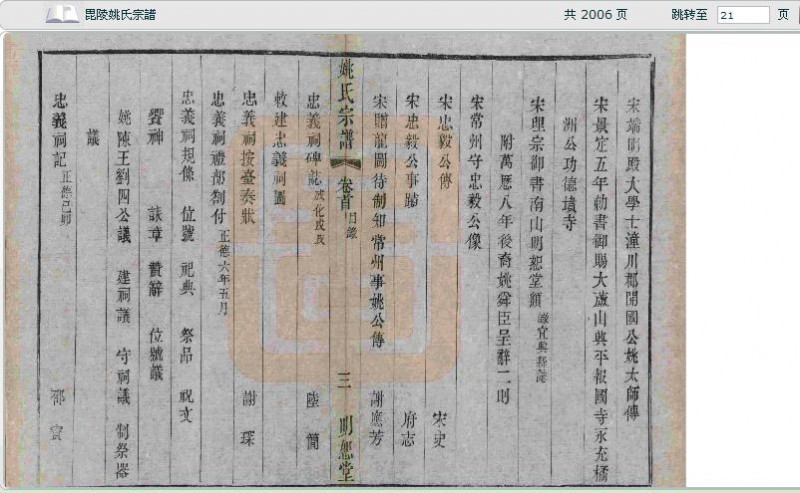 毘陵姚氏宗譜
共 2006 页
跳转至 21 页
宋端明殿大學士潼川郡開國公姚太師傳
宋景定五年勅書御賜大蘆山興平報國寺永充橘
洲公功德墳寺
宋理宗御書南山明恕堂額 載宜興縣誌
附萬歷八年後裔姚舜臣呈辭二則
宋常州守忠毅公像
宋忠毅公傳 宋史
宋忠毅公事略 府志
宋贈龍圖待制知常州事姚公傳 謝應芳
姚氏宗譜 卷首 目錄 三 明恕堂
忠義祠碑誌 成化戊戌 陸簡
敕建忠義祠圖
忠義祠按臺奏狀 謝琛
忠義祠禮部劄付 正德六年五月
忠義祠規條 位號 祀典 祭品 祝文
饗神 詠章 贊辭 位號議
姚陳王劉四公議 建祠議 守祠議 制祭器
議
忠義祠記 正德己卯 邵寶